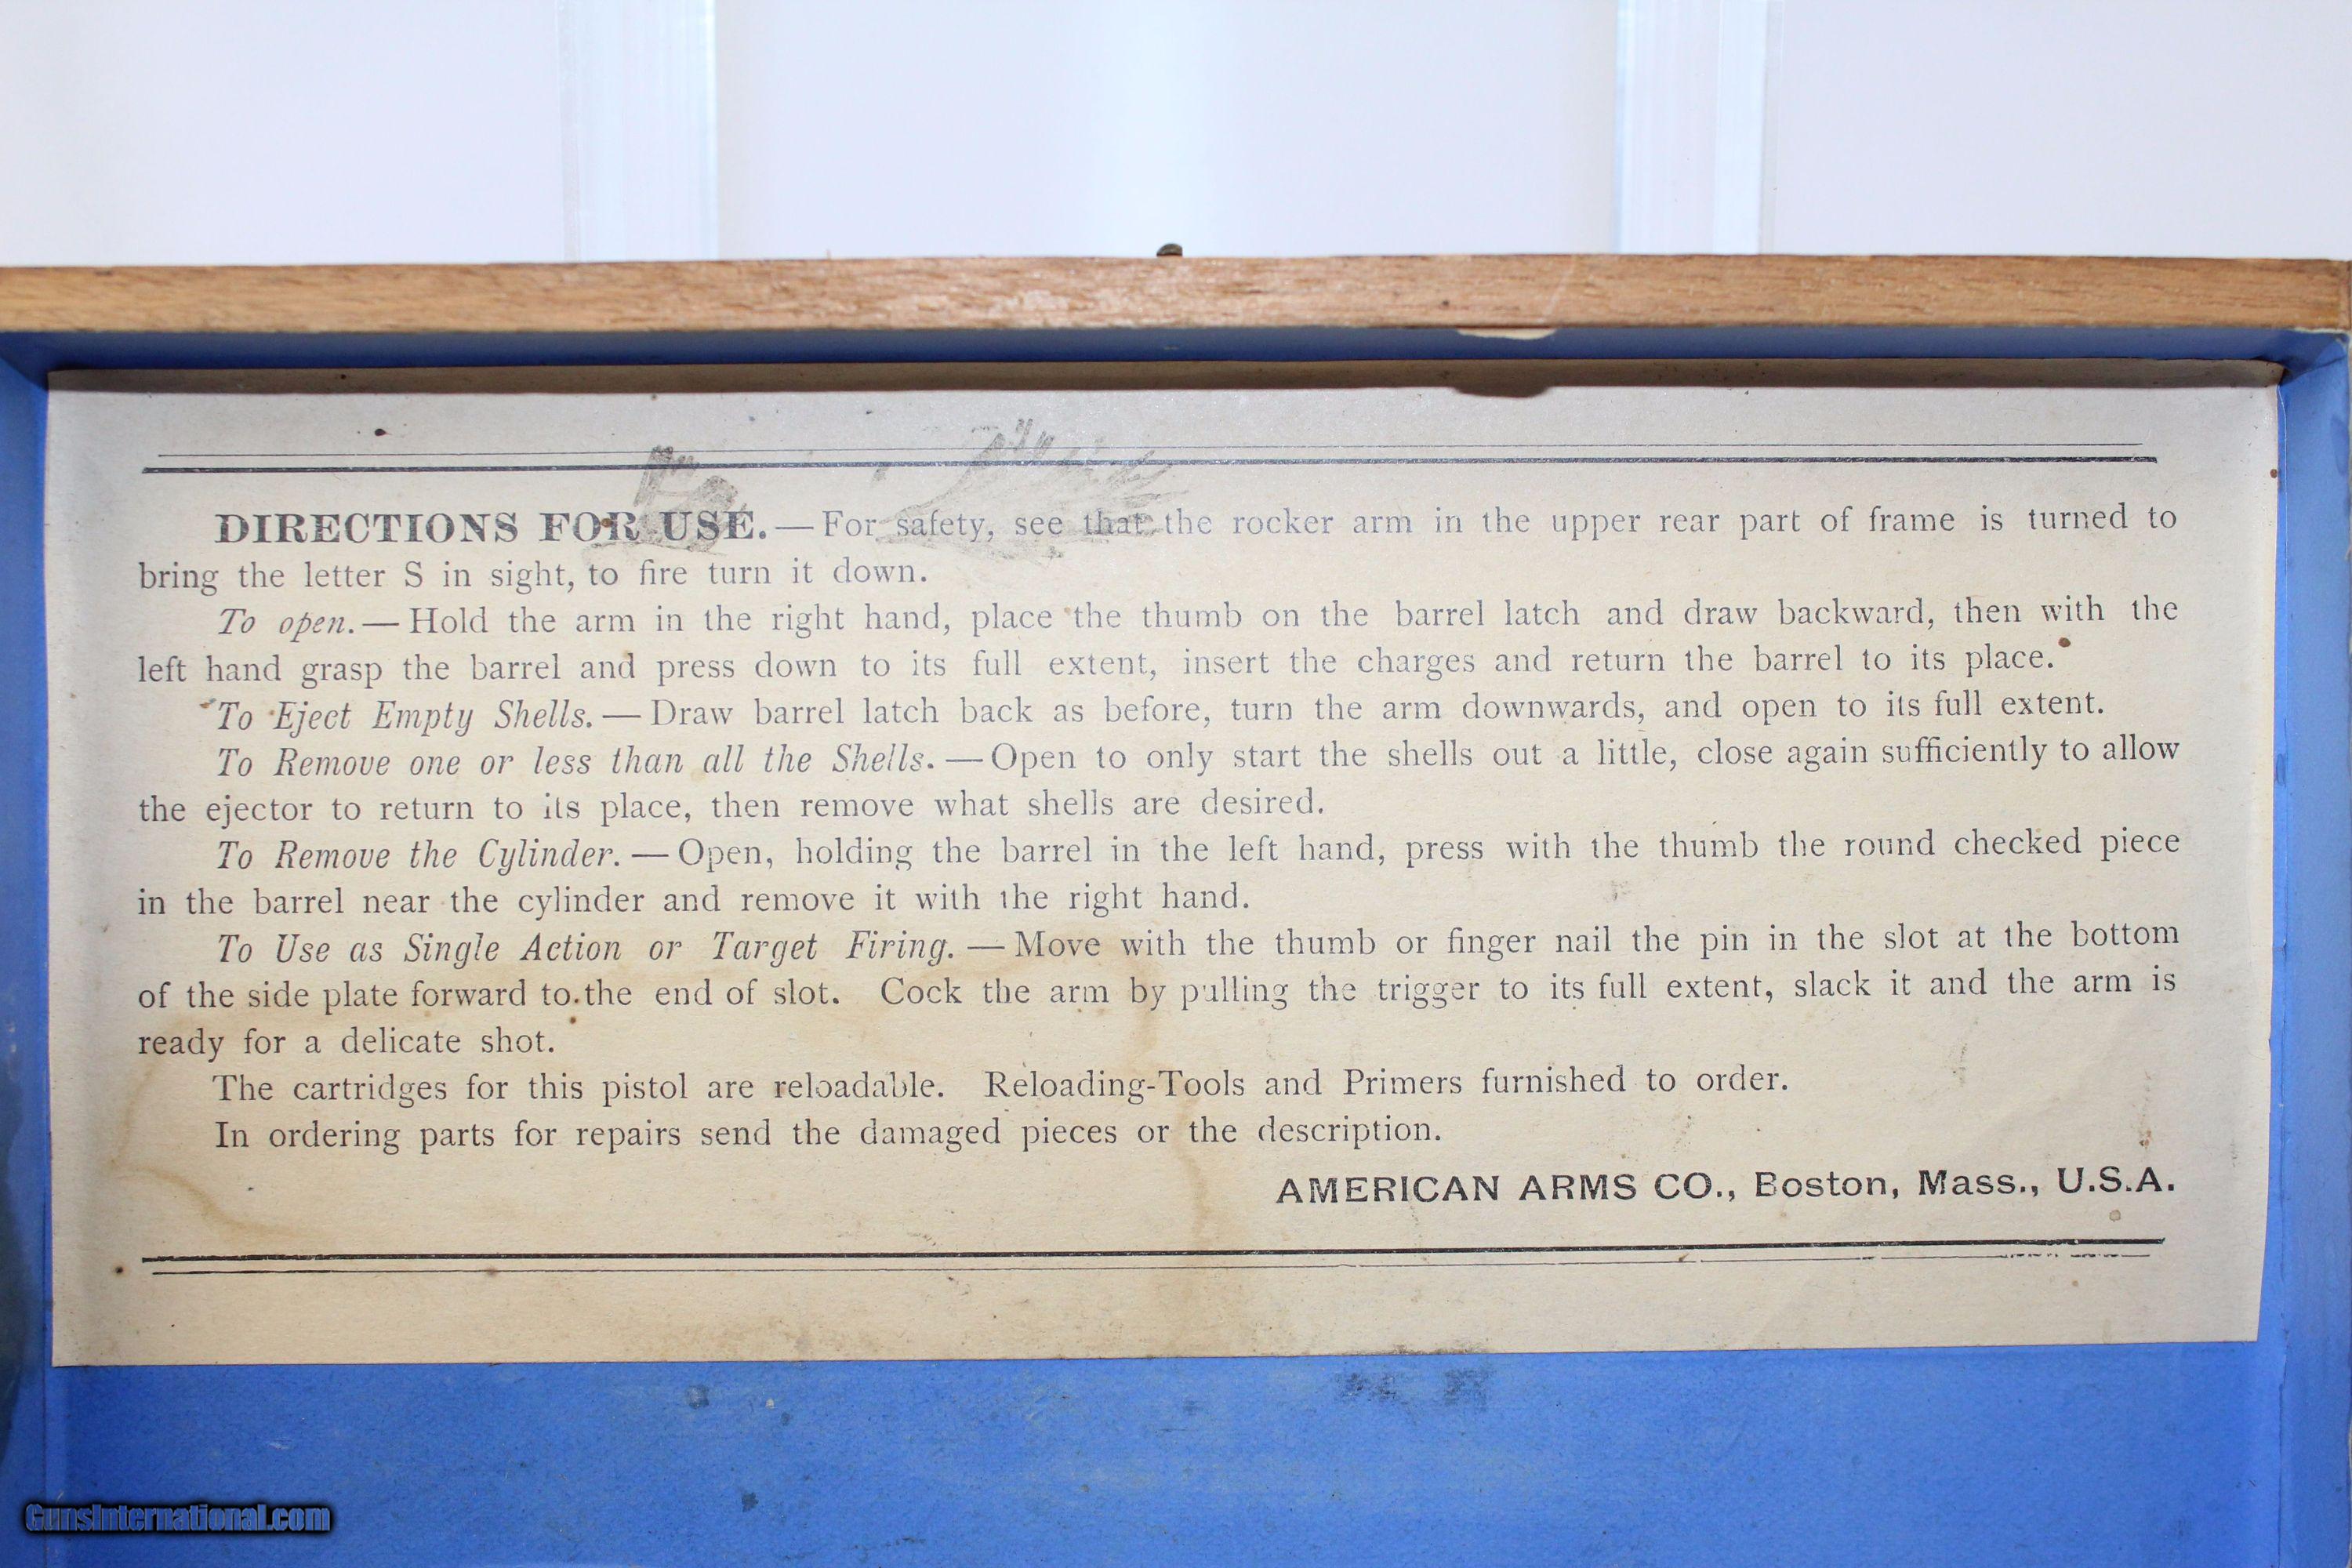 DIRECTIONS FOR USE.—For safety, see that the rocker arm in the upper rear part of frame is turned to
bring the letter S in sight, to fire turn it down.
To open.—Hold the arm in the right hand, place the thumb on the barrel latch and draw backward, then with the
left hand grasp the barrel and press down to its full extent, insert the charges and return the barrel to its place.
To Eject Empty Shells.—Draw barrel latch back as before, turn the arm downwards, and open to its full extent.
To Remove one or less than all the Shells.—Open to only start the shells out a little, close again sufficiently to allow
the ejector to return to its place, then remove what shells are desired.
To Remove the Cylinder.—Open, holding the barrel in the left hand, press with the thumb the round checked piece
in the barrel near the cylinder and remove it with the right hand.
To Use as Single Action or Target Firing.—Move with the thumb or finger nail the pin in the slot at the bottom
of the side plate forward to the end of slot. Cock the arm by pulling the trigger to its full extent, slack it and the arm is
ready for a delicate shot.
The cartridges for this pistol are reloadable. Reloading-Tools and Primers furnished to order.
In ordering parts for repairs send the damaged pieces or the description.
AMERICAN ARMS CO., Boston, Mass., U.S.A.
GunsInternational.com